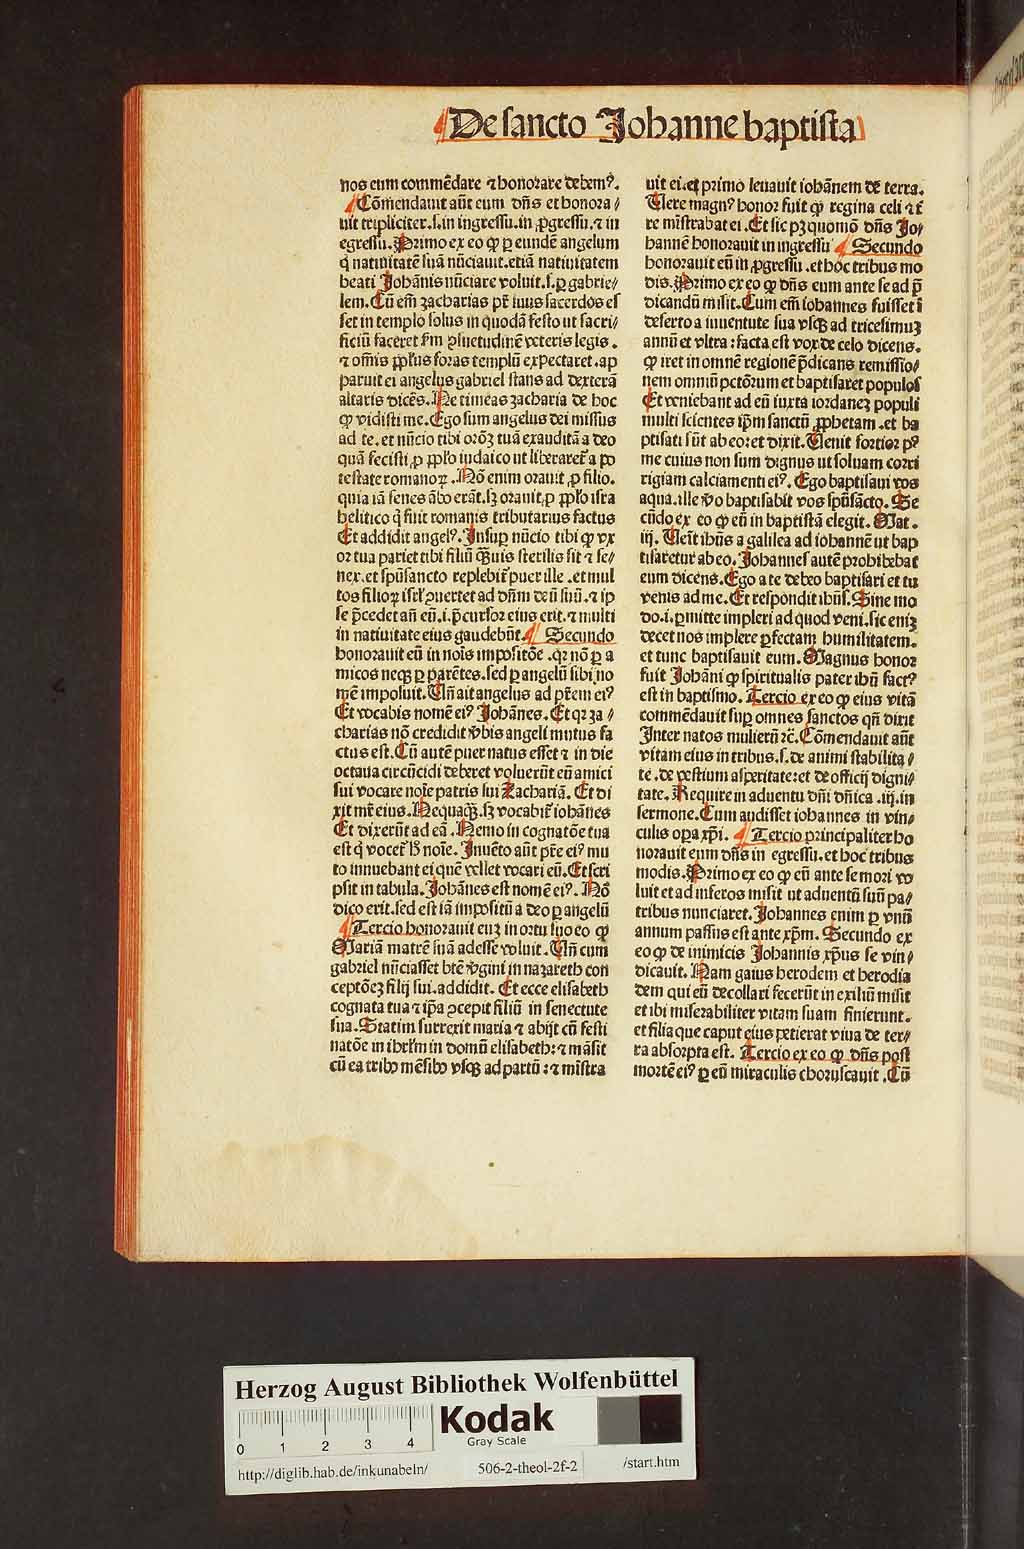 De sancto Johanne baptista
nos eum commēdare ⁊ honorare debemꝰ.
Cōmendauit aūt eum dn̄s et honora/
uit tripliciter.s.in ingressu.in ꝓgressu.⁊ in
egressu. Primo ex eo ꝙ ꝑ eundē angelum
q̄ natiuitatē suā nūciauit.etiā natiuitatem
beati Johānis nūciare voluit.s.ꝑ gabrie/
lem. Cū em̄ zacharias pr̄ iuus sacerdos es
set in templo solus in quodā festo ut sacri/
ficiū faceret scḋm ꝯsuetudinē veteris legis.
⁊ om̄is ppl̄us foras templū expectaret.ap
paruit ei angelus gabriel stans ad dexterā
altaris dicēs. Ne timeas zacharia de hoc
ꝙ vidisti me. Ego sum angelus dei missus
ad te.et nūcio tibi orōꝫ tuā exauditā a deo
quā fecisti ꝓ ppl̄o iudaico ut liberaret̄ a po
testate romanoꝝ. Nō enim orauit ꝓ filio.
quia iā senes ābo erāt.sꝫ orauit ꝓ ppl̄o isra
helitico q̄ fuit romanis tributarius factus
Et addidit angelꝰ. Insuꝑ nūcio tibi ꝙ vx
or tua pariet tibi filiū qͣuis sterilis sit ⁊ se/
nex.et spūsancto replebit̄ puer ille.et mul
tos filioꝝ isrl̄ ꝯuertet ad dn̄m deū suū.⁊ ip
se p̄cedet an̄ eū.i.p̄cursor eius erit.⁊ multi
in natiuitate eius gaudebūt. Secundo
honorauit eū in noīs impositōe.qꝛ nō ꝑ a
micos neqꝫ ꝑ parētes.sed ꝑ angelū sibi no
mē imposuit. Un̄ ait angelus ad pr̄em eiꝰ
Et vocabis nomē eiꝰ Johānes. Et qꝛ za/
charias nō credidit v̄bis angeli mutus fa
ctus est. Cū autē puer natus esset ⁊ in die
octaua circūcidi deberet voluerūt eū amici
sui vocare noīe patris sui Zachariā. Et di
xit mr̄ eius. Nequaqͣꝫ.sꝫ vocabit̄ iohānes
Et dixerūt ad eā. Nemo in cognatōe tua
est q̄ vocet̄ h̄ noīe. Inuēto aūt pr̄e eiꝰ mu
to innuebant ei quē vellet vocari eū. Et scri
psit in tabula. Johānes est nomē eiꝰ. Nō
dico erit.sed est iā impositū a deo ꝑ angelū
Tercio honorauit euꝫ in ortu suo eo ꝙ
Mariā matrē suā adesse voluit. Un̄ cum
gabriel nūciasset btē v̄gini in nazareth con
ceptōeꝫ filij sui.addidit. Et ecce elisabeth
cognata tua ⁊ ip̄a ꝯcepit filiū in senectute
sua. Statim surrexit maria ⁊ abijt cū festi
natōe in ihrl̄m in domū elisabeth:⁊ māsit
cū ea tribꝰ mēsibꝰ vsqꝫ ad partū:⁊ mīstra
uit ei.et primo leuauit iohānem de terra.
Uere magnꝰ honor fuit ꝙ regina celi ⁊ t̄
re mīstrabat ei. Et sic pꝫ quomō dn̄s Jo/
hannē honorauit in ingressu Secundo
honorauit eū in ꝓgressu.et hoc tribus mo
dis. Primo ex eo ꝙ dn̄s eum ante se ad p̄
dicandū misit. Cum em̄ iohannes fuisset ī
deserto a iuuentute sua vsqꝫ ad tricesimuꝫ
annū et vltra:facta est vox de celo dicens.
ꝙ iret in omnē regionē p̄dicans remissio/
nem omniū pctōrum et baptisaret populos
Et veniebant ad eū iuxta iordaneꝫ populi
multi scientes ip̄m sanctū ꝓphetam.et ba
ptisati sūt ab eo:et dixit. Uenit fortior pꝰ
me cuius non sum dignus ut soluam corri
rigiam calciamenti eiꝰ. Ego baptisaui vos
aqua.ille v̄o baptisabit vos spūsācto. Se
cūdo ex eo ꝙ eū in baptistā elegit. Mat.
iij. Uen̄t ihūs a galilea ad iohannē ut bap
tisaretur ab eo. Johannes autē prohibebat
eum dicens. Ego a te debeo baptisari et tu
venis ad me. Et respondit ihūs. Sine mo
do.i.ꝑmitte impleri ad quod veni.sic eniꝫ
decet nos implere ꝑfectam humilitatem.
et tunc baptisauit eum. Magnus honor
fuit Johāni ꝙ spiritualis pater ihū factꝰ
est in baptismo. Tercio ex eo ꝙ eius vitā
commēdauit suꝑ omnes sanctos qn̄ dixit
Inter natos mulierū ⁊c̄. Cōmendauit aūt
vitam eius in tribus.s.de animi stabilita/
te.de vestium asperitate:et de officij digni/
tate. Require in aduentu dn̄i dn̄ica .iij. in
sermone. Cum audisset iohannes in vin/
culis oꝑa xp̄i. Tercio principaliter ho
norauit eum dn̄s in egressu.et hoc tribus
modis. Primo ex eo ꝙ eū ante se mori vo
luit et ad inferos misit ut aduentū suū pa/
tribus nunciaret. Johannes enim ꝑ vnū
annum passus est ante xp̄m. Secundo ex
eo ꝙ de inimicis Johannis xp̄us se vin/
dicauit. Nam gaius herodem et herodia
dem qui eū decollari fecerūt in exiliū misit
et ibi miserabiliter vitam suam finierunt.
et filia que caput eius petierat viua de ter/
ra absorpta est. Tercio ex eo ꝙ dn̄s post
mortē eiꝰ ꝑ eū miraculis choruscauit. Cū
Herzog August Bibliothek Wolfenbüttel
0 1 2 3 4
Kodak
Gray Scale
http://diglib.hab.de/inkunabeln/ 506-2-theol-2f-2 /start.htm